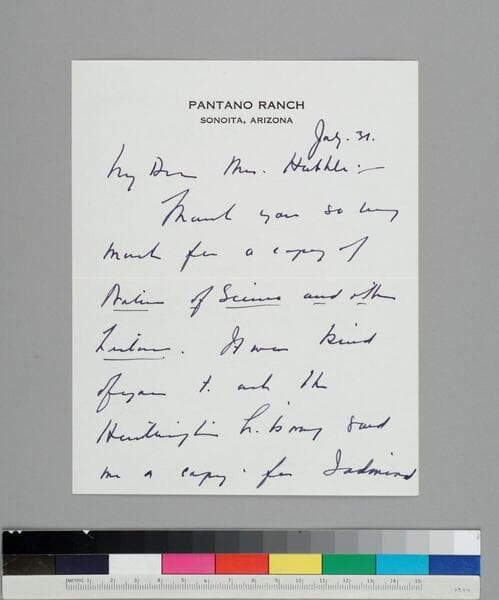 PANTANO RANCH
SONOITA, ARIZONA
July. 31.
My Dear Mrs. Hubble:—
Thank you so very
much for a copy of
Nature of Science and other
Lectures. It was kind
of you to ask the
Huntington Library send
me a copy. for I admired
METRIC 1 2 3 4 5 6 7 8 9 10 11 12 13 14 15